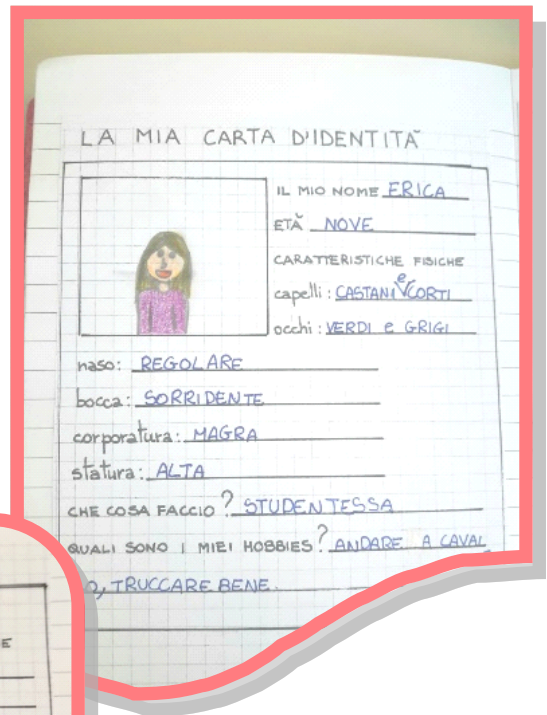 LA MIA CARTA D'IDENTITÀ
IL MIO NOME ERICA
ETÀ NOVE
CARATTERISTICHE FISICHE
capelli: CASTANI e CORTI
occhi: VERDI e GRIGI
naso: REGOLARE
bocca: SORRIDENTE
corporatura: MAGRA
statura: ALTA
CHE COSA FACCIO? STUDENTESSA
QUALI SONO I MIEI HOBBIES? ANDARE A CAVAL
O, TRUCCARE BENE.
E